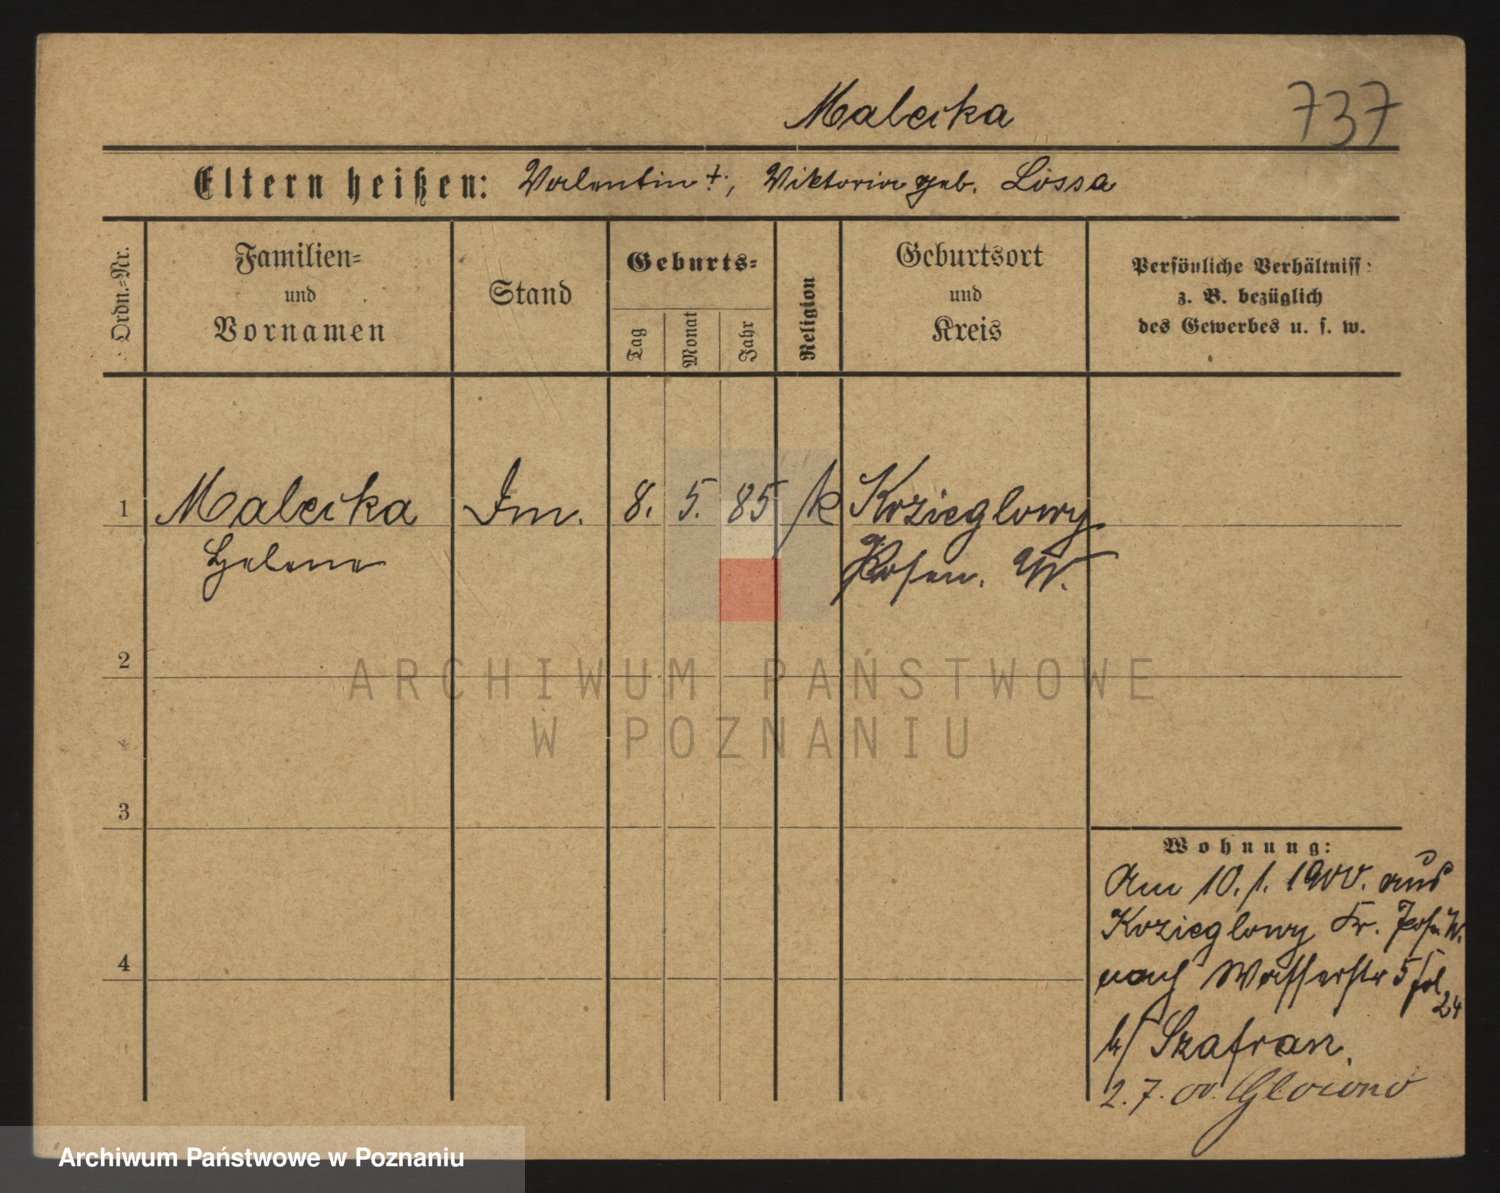 Malecka
737
Eltern heißen: Valentin †, Viktoria geb. Lossa
Ordn.-Nr.
Familien-
und
Vornamen
Stand
Geburts-
Tag
Monat
Jahr
Religion
Geburtsort
und
Kreis
Persönliche Verhältniss:
z. B. bezüglich
des Gewerbes u. s. w.
1 Malecka Dm. 8. 5. 85 k Kozieglowy
Helene Posen. W.
2
ARCHIWUM PAŃSTWOWE
W POZNANIU
3
Wohnung:
Am 10. 1. 1900. aus
Kozieglowy Kr. Posen W.
nach Wasserstr 5 fol
24
b/ Szafran.
2. 7. 00. Glowno
4
Archiwum Państwowe w Poznaniu